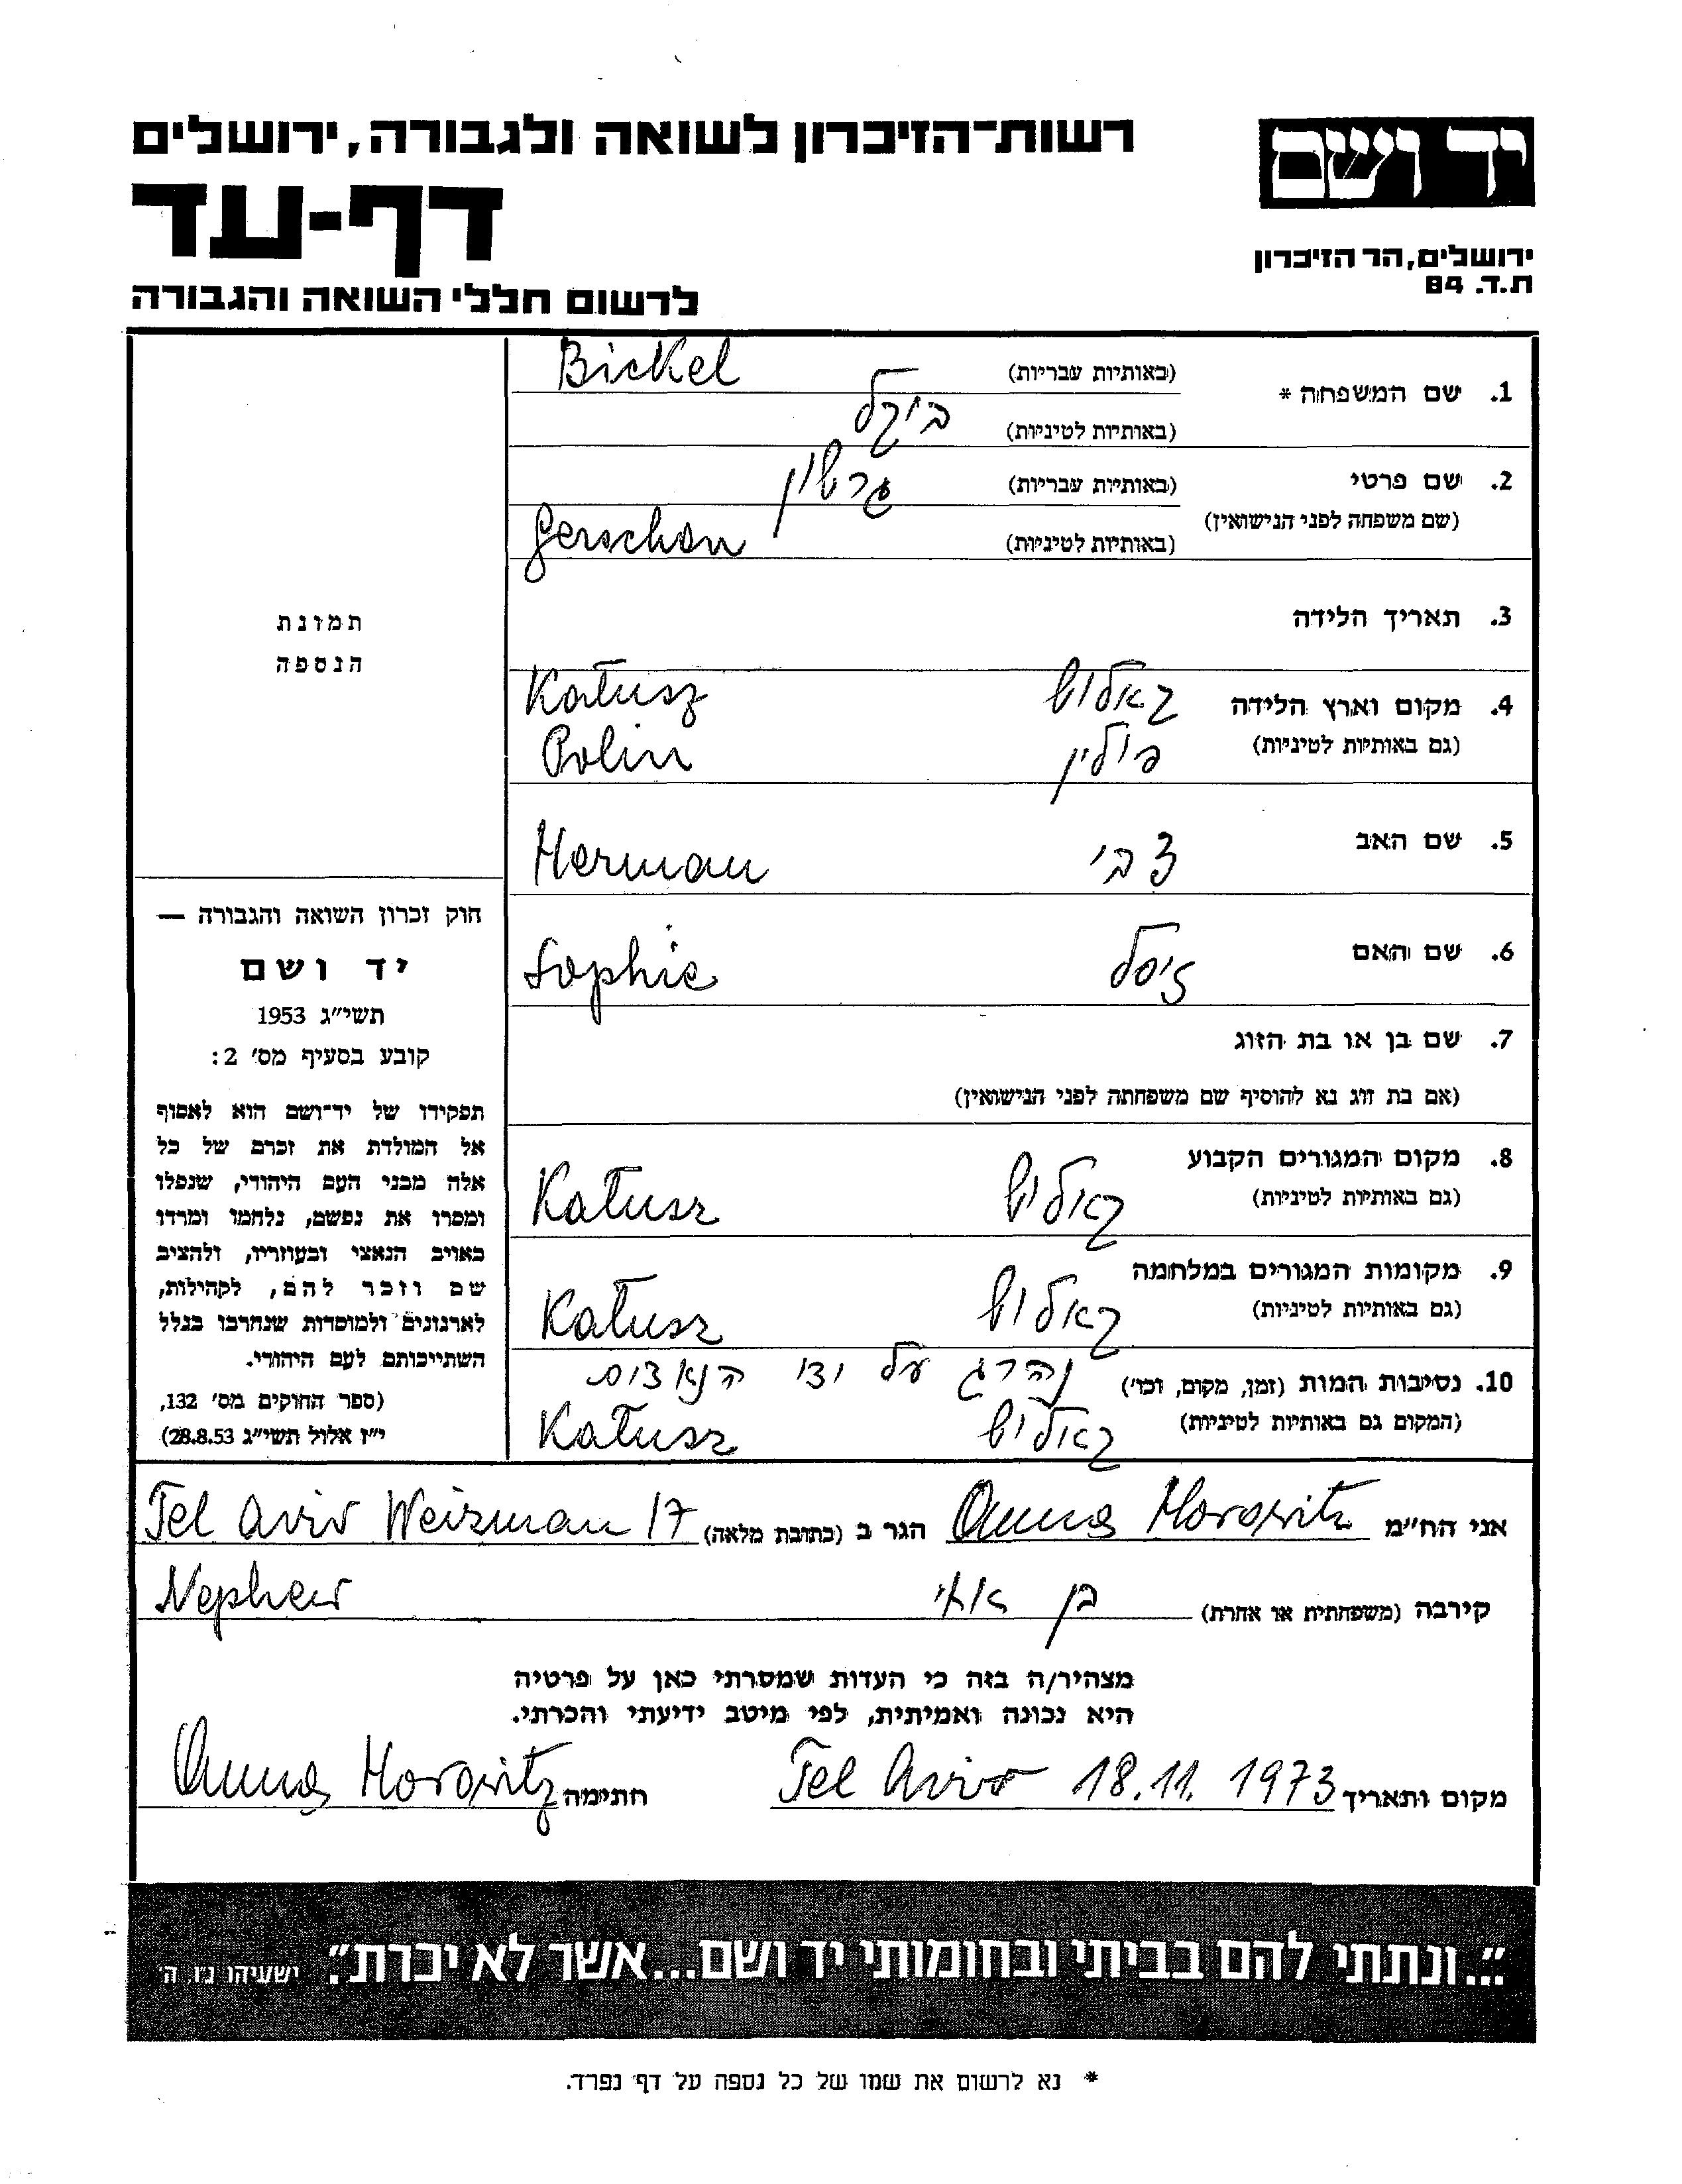 רשות־הזיכרון לשואה ולגבורה, ירושלים
דף-עד
לרשום חללי השואה והגבורה
יד ושם
ירושלים, הר הזיכרון
ת.ד. 84
1. שם המשפחה *
(באותיות עבריות) Bickel
(באותיות לטיניות) ביקל
2. שם פרטי
(שם משפחה לפני הנישואין)
(באותיות עבריות) גרשון
(באותיות לטיניות) Gerschon
3. תאריך הלידה
4. מקום וארץ הלידה קאלוש Kałusz
(גם באותיות לטיניות) פולין Polin
5. שם האב צבי Herman
6. שם האם זיסל Sophie
7. שם בן או בת הזוג
(אם בת זוג נא להוסיף שם משפחתה לפני הנישואין)
8. מקום המגורים הקבוע קאלוש Kałusz
(גם באותיות לטיניות)
9. מקומות המגורים במלחמה קאלוש Kałusz
(גם באותיות לטיניות)
10. נסיבות המות (זמן, מקום, וכו') נהרג על ידי הנאצים
(המקום גם באותיות לטיניות) קאלוש Kałusz
תמונת
הנספה
חוק זכרון השואה והגבורה —
יד ושם
תשי״ג 1953
קובע בסעיף מס׳ 2:
תפקידו של יד־ושם הוא לאסוף
אל המולדת את זכרם של כל
אלה מבני העם היהודי, שנפלו
ומסרו את נפשם, נלחמו ומרדו
באויב הנאצי ובעוזריו, ולהציב
שם וזכר להם, לקהילות,
לארגונים ולמוסדות שנחרבו בגלל
השתייכותם לעם היהודי.
(ספר החוקים מס׳ 132,
י״ז אלול תשי״ג 28.8.53)
אני הח״מ Anna Horowitz הגר ב (כתובת מלאה) Tel Aviv Weizman 17
קירבה (משפחתית או אחרת) בן אחי Nephew
מצהיר/ה בזה כי העדות שמסרתי כאן על פרטיה
היא נכונה ואמיתית, לפי מיטב ידיעתי והכרתי.
מקום ותאריך Tel Aviv 18.11.1973 חתימה Anna Horowitz
״...ונתתי להם בביתי ובחומותי יד ושם...אשר לא יכרת״. ישעיהו נ״ו ה׳
* נא לרשום את שמו של כל נספה על דף נפרד.